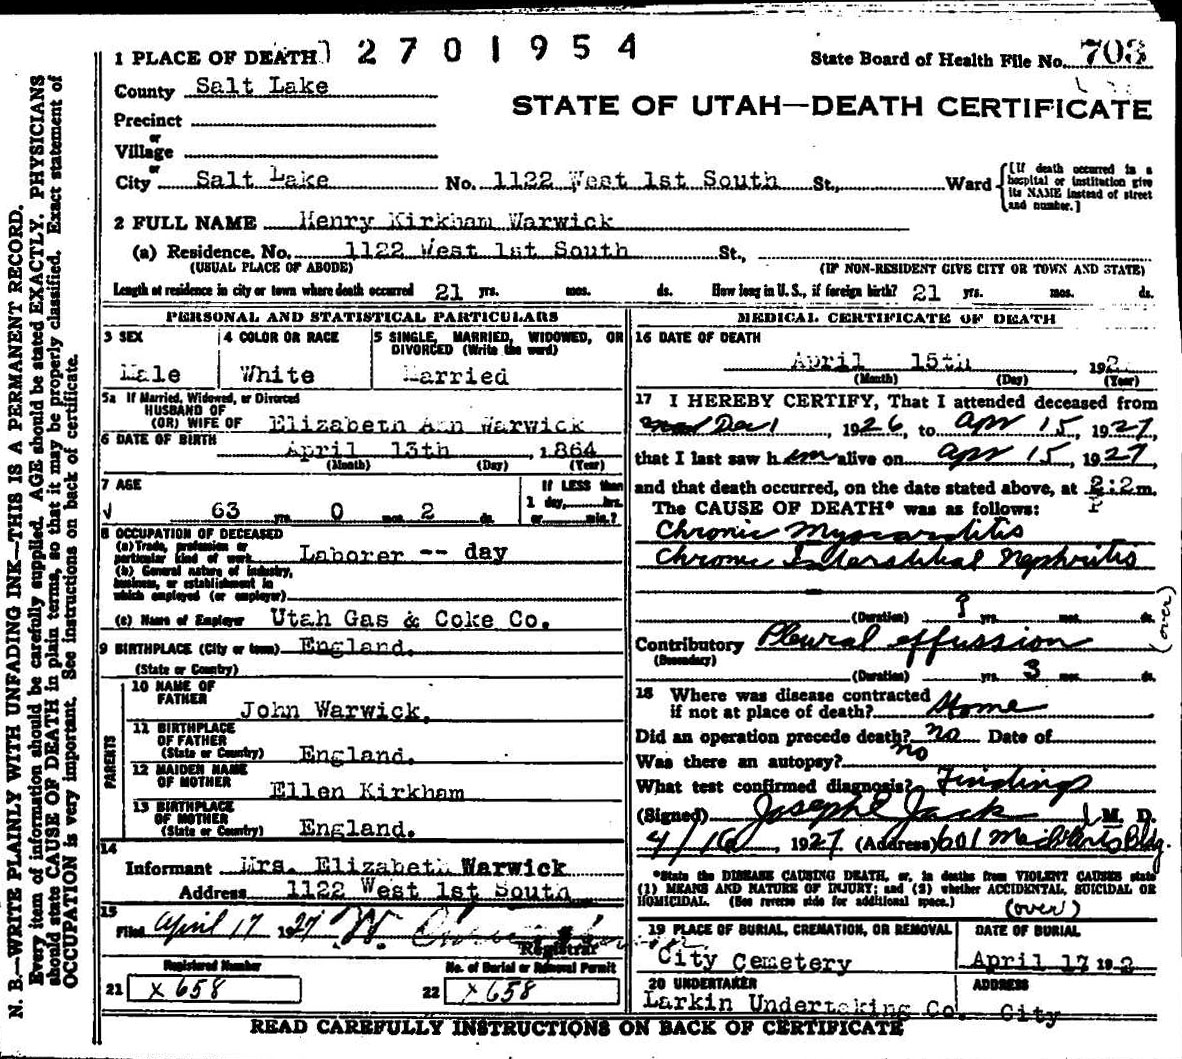 1 PLACE OF DEATH 2 7 0 1 9 5 4 State Board of Health File No. 703
County Salt Lake
STATE OF UTAH—DEATH CERTIFICATE
Precinct
or
Village
or
City Salt Lake No. 1122 West 1st South St., Ward [If death occurred in a hospital or institution give its NAME instead of street and number.]
2 FULL NAME Henry Kirkham Warwick
(a) Residence. No. 1122 West 1st South St.,
(USUAL PLACE OF ABODE) (IF NON-RESIDENT GIVE CITY OR TOWN AND STATE)
Length of residence in city or town where death occurred 21 yrs. mos. ds. How long in U. S., if foreign birth? 21 yrs. mos. ds.
PERSONAL AND STATISTICAL PARTICULARS
3 SEX 4 COLOR OR RACE 5 SINGLE, MARRIED, WIDOWED, OR DIVORCED (Write the word)
Male White Married
5a If Married, Widowed, or Divorced
HUSBAND OF
(OR) WIFE OF Elizabeth Ann Warwick
6 DATE OF BIRTH April 13th, 1864
(Month) (Day) (Year)
7 AGE If LESS than
1 day, hrs.
63 yrs. 0 mos. 2 ds. or min.?
8 OCCUPATION OF DECEASED
(a) Trade, profession or
particular kind of work Laborer -- day
(b) General nature of industry,
business, or establishment in
which employed (or employer)
(c) Name of Employer Utah Gas & Coke Co.
9 BIRTHPLACE (City or town) England.
(State or Country)
PARENTS
10 NAME OF
FATHER John Warwick.
11 BIRTHPLACE
OF FATHER
(State or Country) England.
12 MAIDEN NAME
OF MOTHER Ellen Kirkham
13 BIRTHPLACE
OF MOTHER
(State or Country) England.
14
Informant Mrs. Elizabeth Warwick
Address 1122 West 1st South
15
Filed April 17 1927
Registrar
Registered Number No. of Burial or Removal Permit
21 x 658 22 x 658
MEDICAL CERTIFICATE OF DEATH
16 DATE OF DEATH
April 15th 192
(Month) (Day) (Year)
17 I HEREBY CERTIFY, That I attended deceased from
Dec 1, 1926, to Apr 15, 1927,
that I last saw him alive on Apr 15, 1927,
and that death occurred, on the date stated above, at m.
The CAUSE OF DEATH* was as follows:
Chronic Myocarditis
Chronic Interstitial Nephritis
(Duration) yrs. mos. ds.
(over)
Contributory Pleural effussion
(Secondary)
(Duration) yrs. 3 mos. ds.
18 Where was disease contracted
if not at place of death? Home
Did an operation precede death? no Date of
Was there an autopsy? no
What test confirmed diagnosis? Findings
(Signed) Joseph E Jack M. D.
4/16, 1927 (Address) 601 Bldg.
*State the DISEASE CAUSING DEATH, or, in deaths from VIOLENT CAUSES state
(1) MEANS AND NATURE OF INJURY; and (2) whether ACCIDENTAL, SUICIDAL OR
HOMICIDAL. (See reverse side for additional space.)
(over)
19 PLACE OF BURIAL, CREMATION, OR REMOVAL DATE OF BURIAL
City Cemetery April 17 192
20 UNDERTAKER ADDRESS
Larkin Undertaking Co. City
READ CAREFULLY INSTRUCTIONS ON BACK OF CERTIFICATE
N. B.—WRITE PLAINLY WITH UNFADING INK—THIS IS A PERMANENT RECORD.
Every item of information should be carefully supplied. AGE should be stated EXACTLY. PHYSICIANS
should state CAUSE OF DEATH in plain terms, so that it may be properly classified. Exact statement of
OCCUPATION is very important. See instructions on back of certificate.